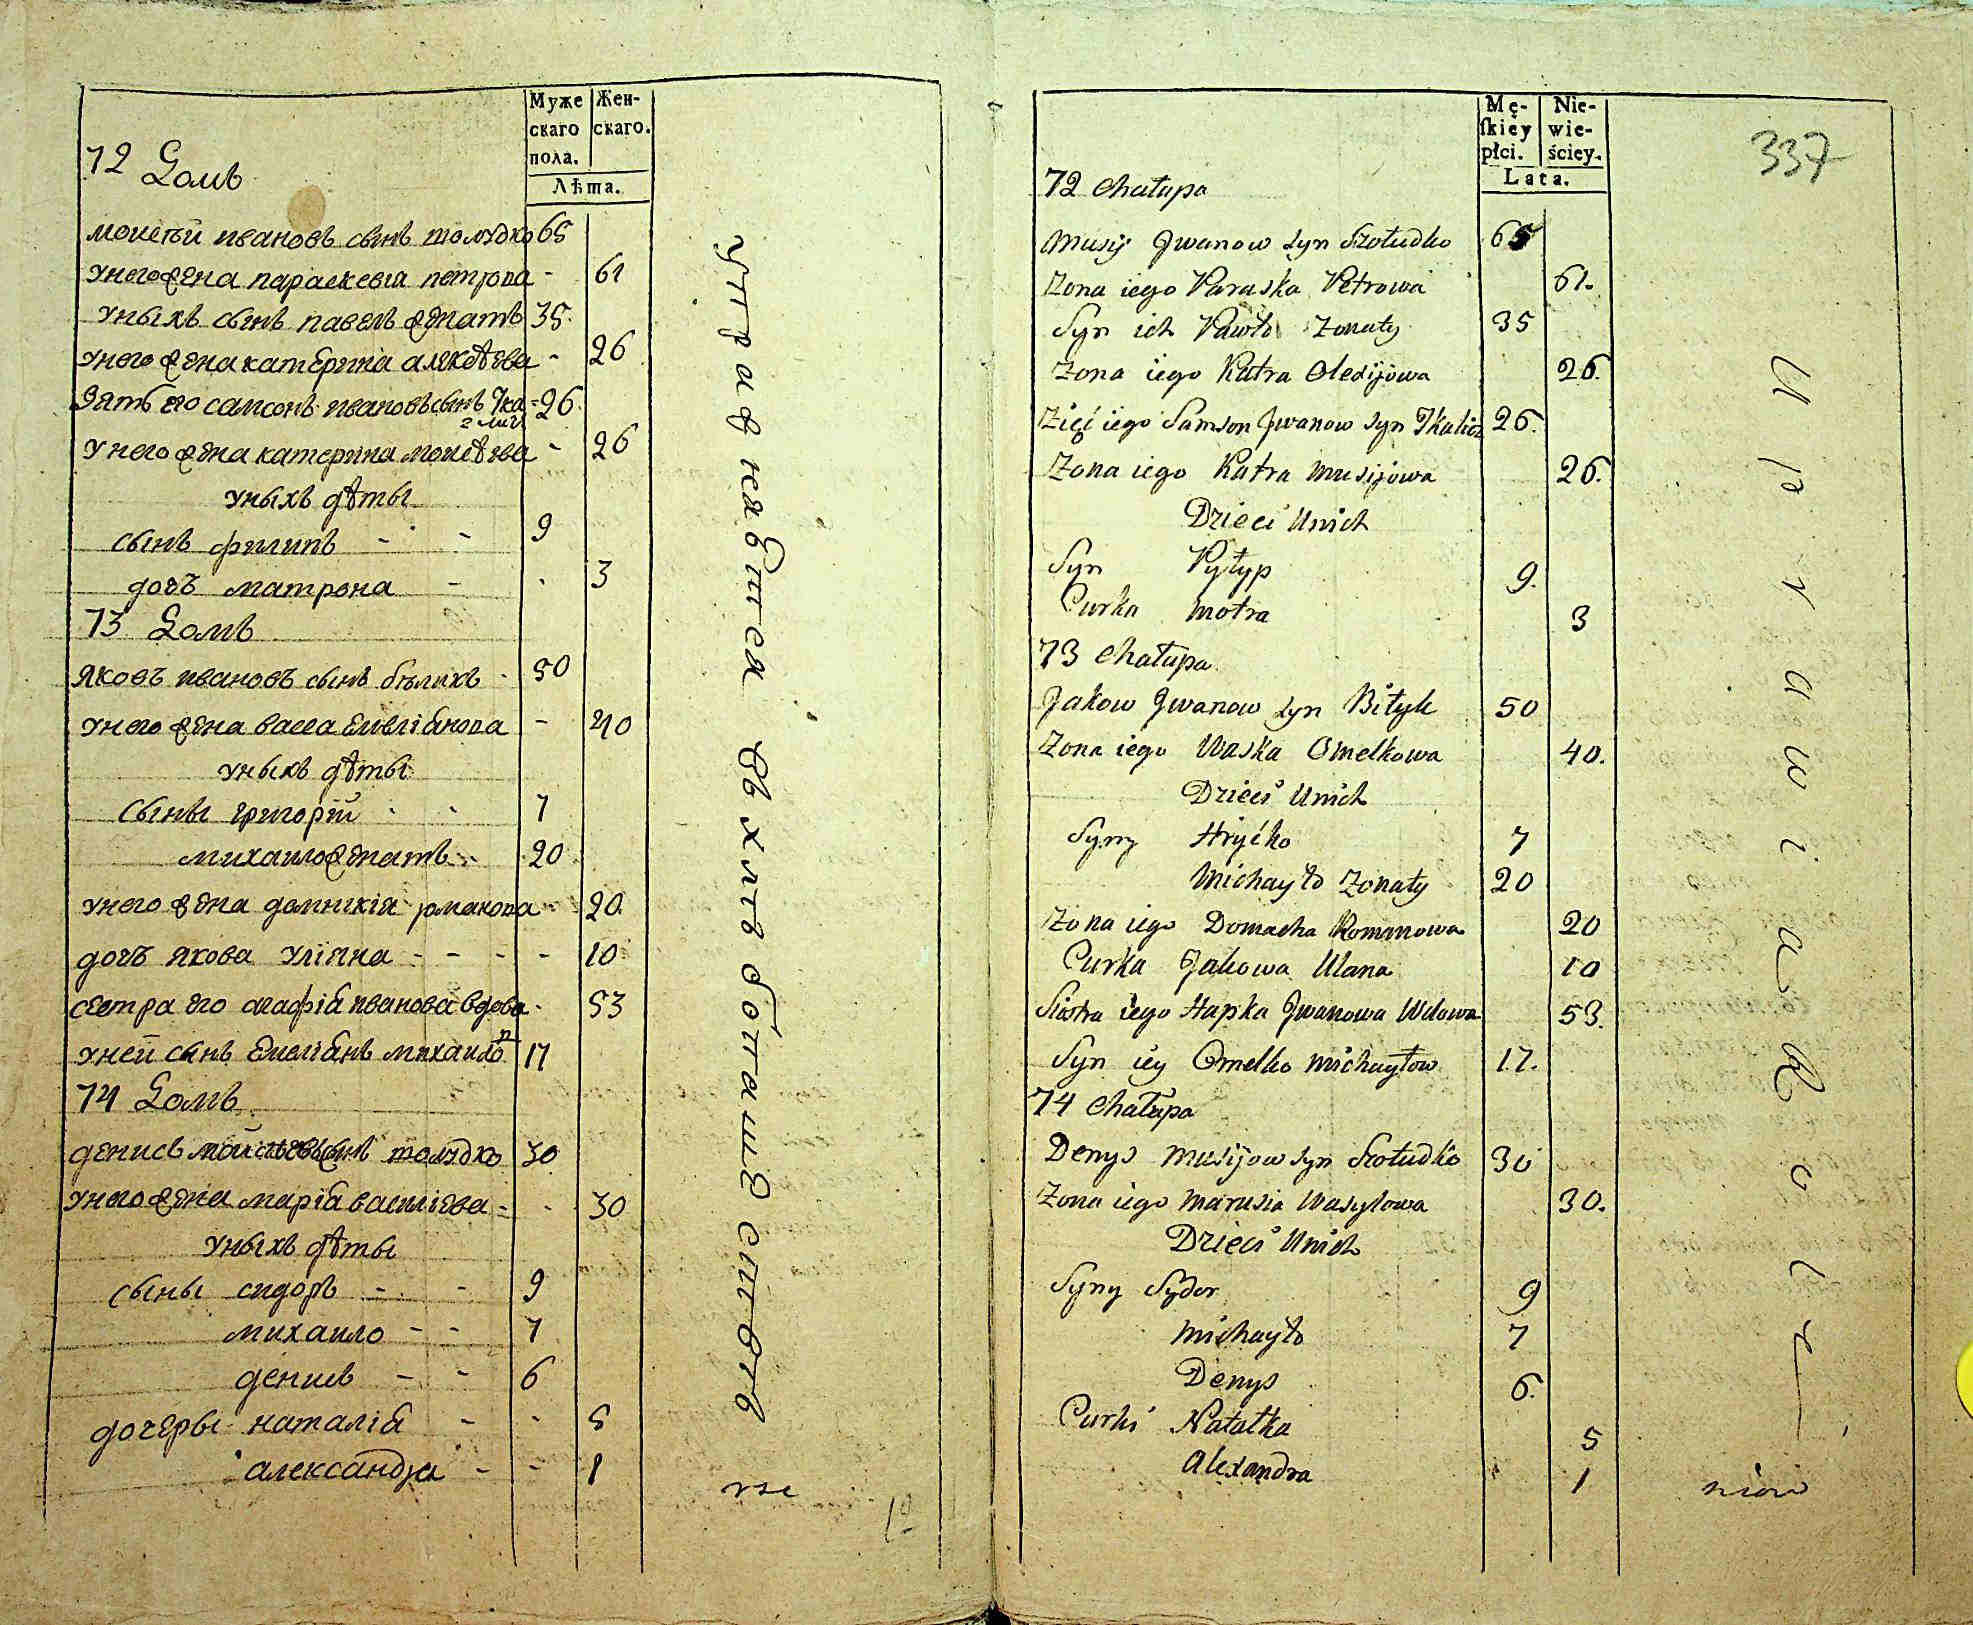 Муже
скаго
пола.
Жен-
скаго.
Лѣта.
72 Домъ
моисей ивановъ сынъ шолудко 65
унего жена параскевія петрова - 61
унихъ сынъ павелъ женатъ 35.
унего жена катерина алексѣева - 26
Зять его самсонъ ивановъ сынъ 26.
унего жена катерина моисѣева - 26
унихъ дѣты
сынъ филипъ - - 9
дочъ матрона - . 3
73 Домъ
яковъ ивановъ сынъ билыкъ - 50
унего жена васса Емеліанова - 40
унихъ дѣты
сыны григорій - - 7
михаило женатъ - 20
унего жена домникія романова - 20.
дочъ якова уліяна - - - - 10
сестра его агафія иванова вдова - 53
уней сынъ Емеліанъ михаило 17
74 Домъ
денисъ мойсѣевъ сынъ шолудко 30
унего жена марія василіева - - 30
унихъ дѣты
сыны сидоръ - - 9
михаило - - 7
денисъ - - 6
дочеры наталія - - 5
александра - - 1
управляющей
1o
Mę-
ſkiey
płci.
Nie-
wie-
ściey.
Lata.
337
72 Chałupa
Musij Jwanow syn Szołudko 65
Zona iego Paraska Petrowa 61.
Syn ich Pawło Zonaty 35
Zona iego Katra Olexijowa 26.
Zięć iego Samson Jwanow syn Tkalicz 26.
Zona iego Katra Musijowa 26.
Dzieci Unich
Syn Pyłyp 9.
Curka Motra 3
73 Chałupa
Jakow Jwanow syn Biłyk 50
Zona iego Waska Omelkowa 40.
Dzieci Unich
Syny Hryćko 7
Michayło Zonaty 20
Zona iego Domacha Romanowa 20
Curka Jakowa Ulana 10
Siostra iego Hapka Jwanowa Wdowa 53.
Syn iey Omelko Michayłow 17.
74 Chałupa
Denys Musijow syn Szołudko 30
Zona iego Marusia Wasylowa 30.
Dzieci Unich
Syny Sydor 9
Michayło 7
Denys 6.
Curki Natałka 5
Alexandra 1